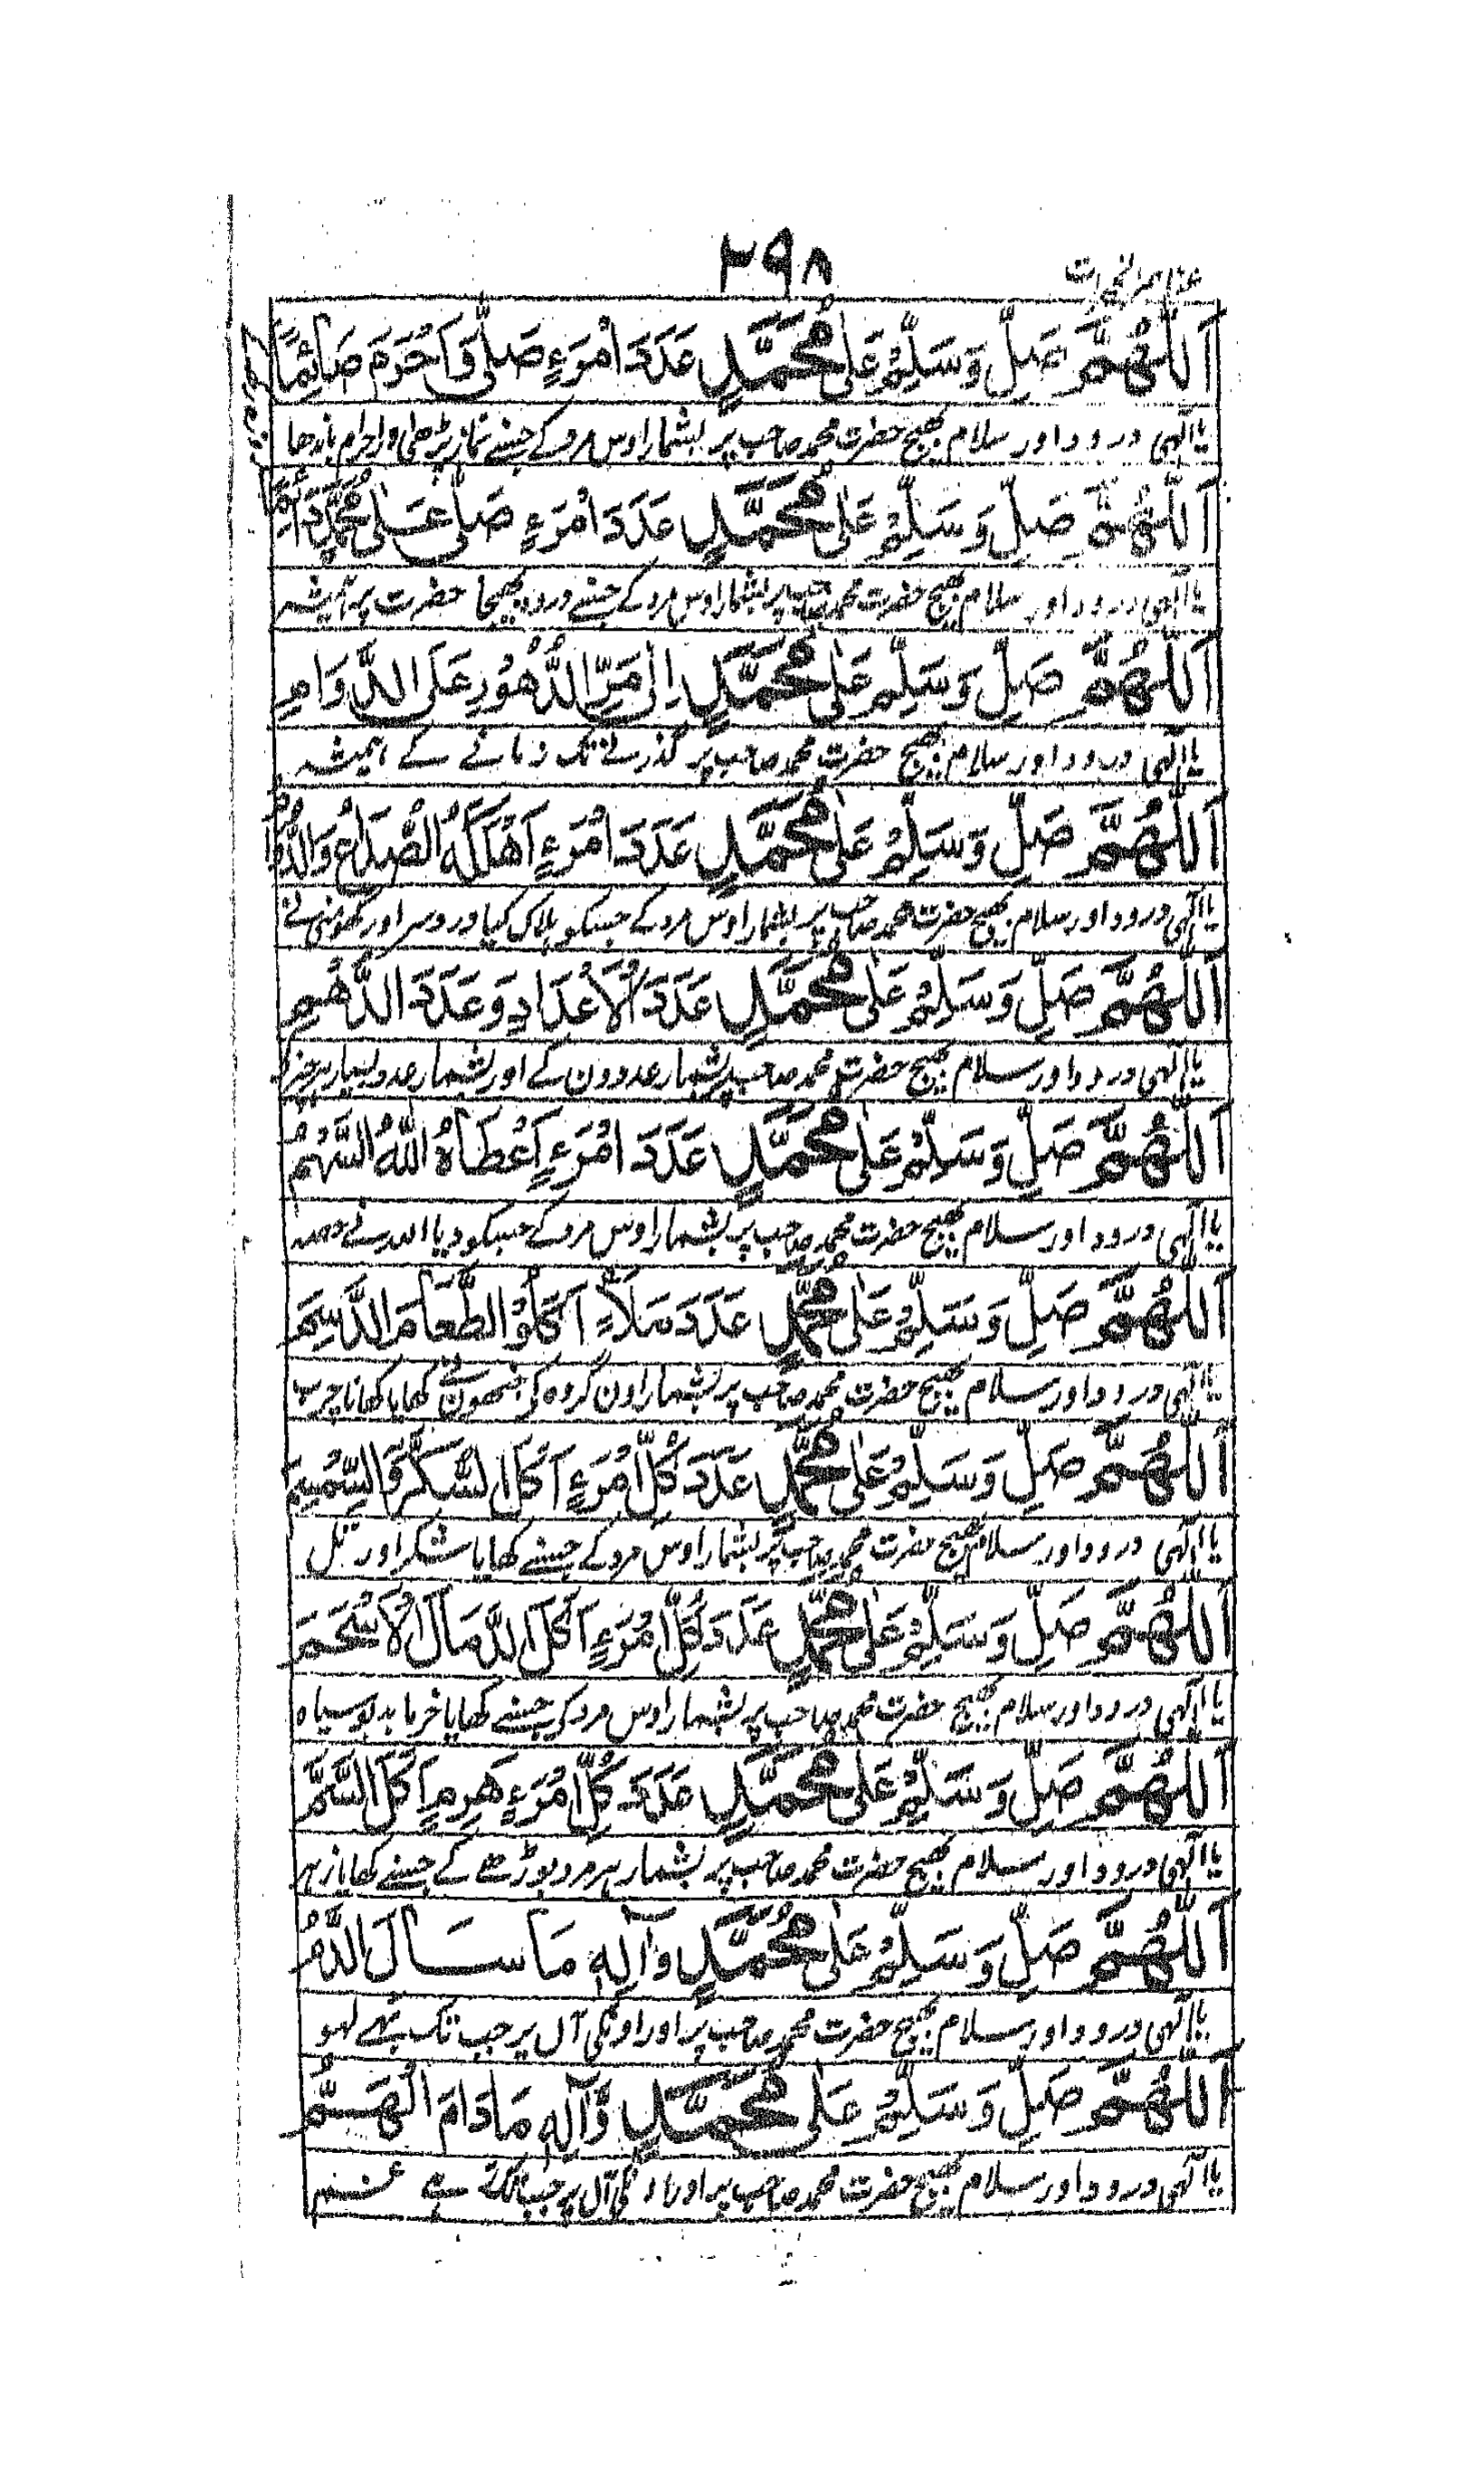 ٢٩٨
اَللّٰهُمَّ صَلِّ وَسَلِّمْ عَلٰى مُحَمَّدٍ عَدَدَ امْرَءٍ صَلّٰى وَاَحْرَمَ صَائِمًا
یا الٰہی درود اور سلام بھیج حضرت محمد صاحب پر بشمار اوس مرد کے جسنے نماز پڑھی اور احرام باندھا
اَللّٰهُمَّ صَلِّ وَسَلِّمْ عَلٰى مُحَمَّدٍ عَدَدَ امْرَءٍ صَلّٰى عَلٰى مُحَمَّدٍ دَائِمًا
یا الٰہی درود اور سلام بھیج حضرت محمد صاحب پر بشمار اوس مرد کے جسنے درود بھیجا حضرت پر ہمیشہ
اَللّٰهُمَّ صَلِّ وَسَلِّمْ عَلٰى مُحَمَّدٍ اِلٰى مَرِّ الدُّهُوْرِ عَلَى الدَّوَامِ
یا الٰہی درود اور سلام بھیج حضرت محمد صاحب پر گذرنے تک زمانے کے ہمیشہ
اَللّٰهُمَّ صَلِّ وَسَلِّمْ عَلٰى مُحَمَّدٍ عَدَدَ امْرَءٍ اَهْلَكَهُ الصُّدَاعُ وَالدُّوَارُ
یا الٰہی درود اور سلام بھیج حضرت محمد صاحب پر بشمار اوس مرد کے جسکو ہلاک کیا درد سر اور گھومنی نے
اَللّٰهُمَّ صَلِّ وَسَلِّمْ عَلٰى مُحَمَّدٍ عَدَدَ الْاَعْدَادِ وَعَدَدَ الدَّهْيِمِ
یا الٰہی درود اور سلام بھیج حضرت محمد صاحب پر بشمار عددون کے اور بشمار عدد بسیار
اَللّٰهُمَّ صَلِّ وَسَلِّمْ عَلٰى مُحَمَّدٍ عَدَدَ امْرَءٍ اَعْطَاهُ اللّٰهُ السَّهْمَ
یا الٰہی درود اور سلام بھیج حضرت محمد صاحب پر بشمار اوس مرد کے جسکو دیا اللہ نے حصہ
اَللّٰهُمَّ صَلِّ وَسَلِّمْ عَلٰى مُحَمَّدٍ عَدَدَ مَلَاءٍ اَكَلُوْا الطَّعَامَ الدَّسِمَ
یا الٰہی درود اور سلام بھیج حضرت محمد صاحب پر بشمار اون گروہ کی جنھون نے کھایا کھانا چرب
اَللّٰهُمَّ صَلِّ وَسَلِّمْ عَلٰى مُحَمَّدٍ عَدَدَ كُلِّ امْرَءٍ اَكَلَ السُّكَّرَ وَالسِّمْسِمَ
یا الٰہی درود اور سلام بھیج حضرت محمد صاحب پر بشمار اوس مرد کے جسنے کھایا شکر اور تل
اَللّٰهُمَّ صَلِّ وَسَلِّمْ عَلٰى مُحَمَّدٍ عَدَدَ كُلِّ امْرَءٍ اَكَلَ الدَّمَالَ الْاَسْحَمَ
یا الٰہی درود اور سلام بھیج حضرت محمد صاحب پر بشمار اوس مرد کی جسنے کھایا خرما بدبو سیاہ
اَللّٰهُمَّ صَلِّ وَسَلِّمْ عَلٰى مُحَمَّدٍ عَدَدَ كُلِّ امْرَءٍ هَرِمٍ اَكَلَ السَّمَّ
یا الٰہی درود اور سلام بھیج حضرت محمد صاحب پر بشمار ہر مرد بوڑھے کے جسنے کھایا زہر
اَللّٰهُمَّ صَلِّ وَسَلِّمْ عَلٰى مُحَمَّدٍ وَاٰلِهِ مَا سَالَ الدَّمُ
یا الٰہی درود اور سلام بھیج حضرت محمد صاحب پر اور اونکی آل پر جب تک بہے لہو
اَللّٰهُمَّ صَلِّ وَسَلِّمْ عَلٰى مُحَمَّدٍ وَّاٰلِهِ مَا دَامَ الْهَمُّ
یا الٰہی درود اور سلام بھیج حضرت محمد صاحب پر اور اونکی آل پر جب تک ہے غم